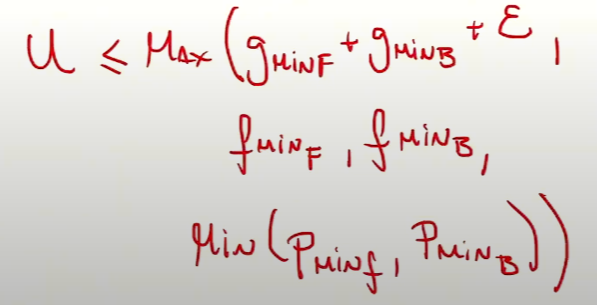 U ≤ MAX(gMINF + gMINB + ε,
fMINF, fMINB,
MIN(PMINf, PMINB))